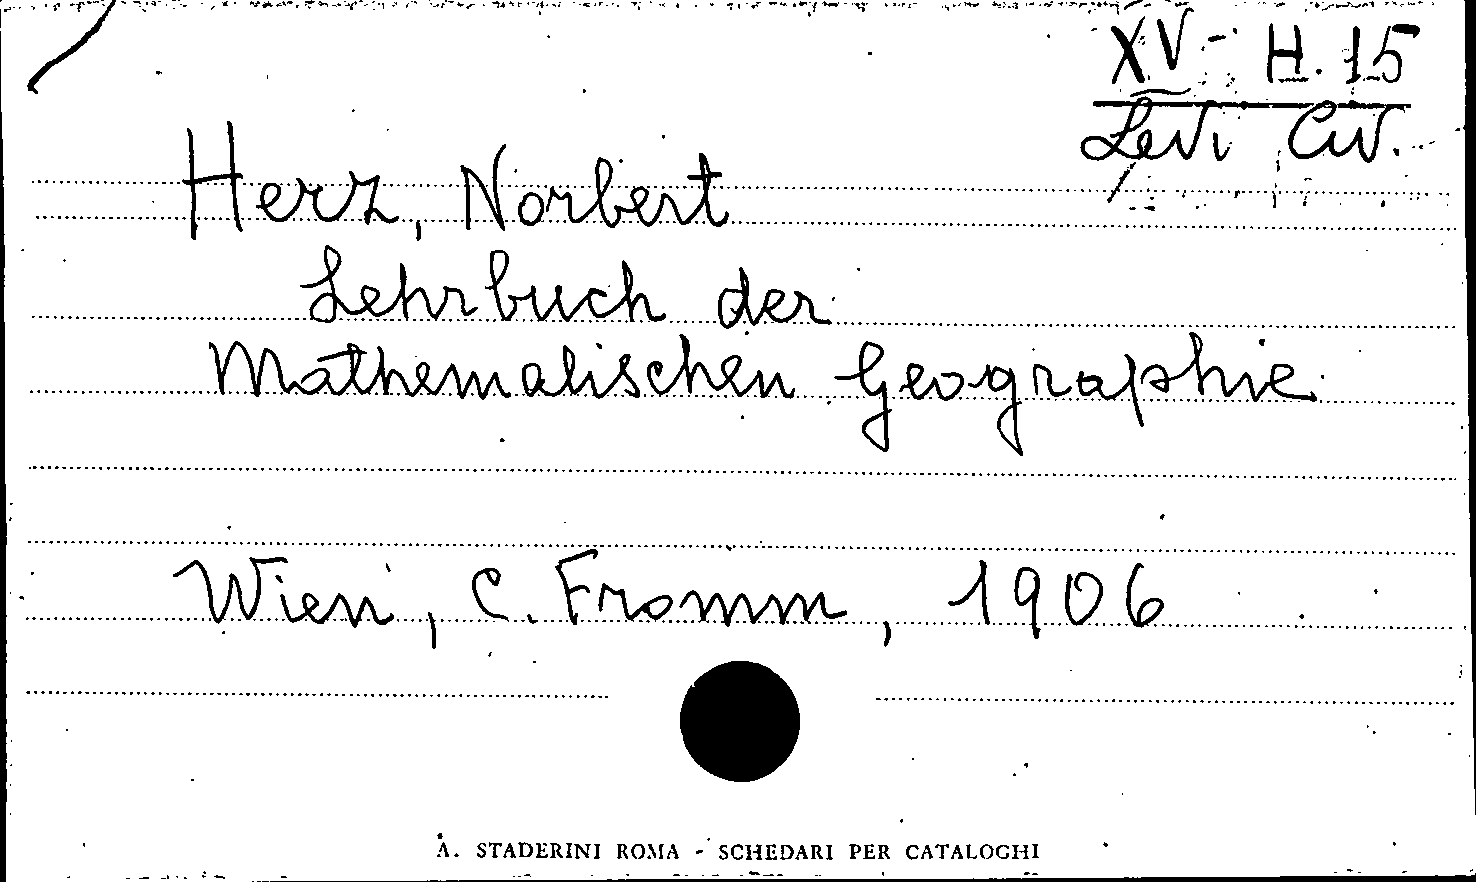 XV - H. 15
Levi Civ.
Herz, Norbert
Lehrbuch der
Mathematischen Geographie
Wien, C. Fromm, 1906
A. STADERINI ROMA - SCHEDARI PER CATALOGHI